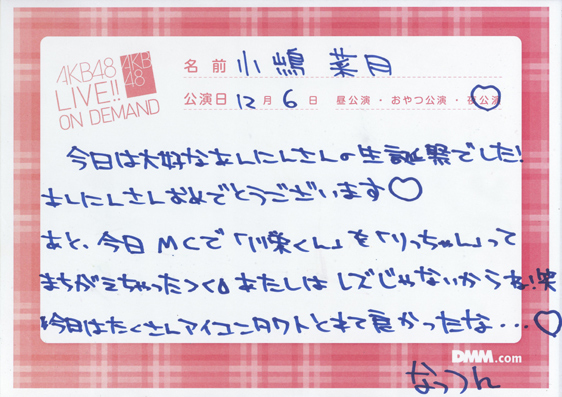 AKB48
LIVE!!
ON DEMAND
AKB
48
名前 小嶋 菜月
公演日 12月 6日 昼公演・おやつ公演・夜公演
今日は大好きなあんにんさんの生誕祭でした!
あんにんさんおめでとうございます♡
あと、今日MCで「川栄くん」を「りっちゃん」って
まちがえちゃった><。あたしはレズじゃないからね!笑
今日はたくさんアイコンタクトとれて良かったな...♡
DMM.com
なっつん